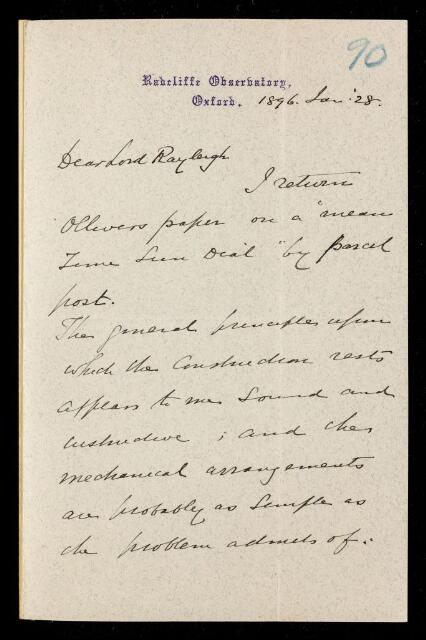 90
Radcliffe Observatory,
Oxford. 1896. Jan: 28.
Dear Lord Rayleigh
I return
Ollivers paper on a "mean
Time Sun Dial" by parcel
post.
The general principles upon
which the Construction rests
appears to me Sound and
instructive; and the
mechanical arrangements
are probably as Simple as
the problem admits of.